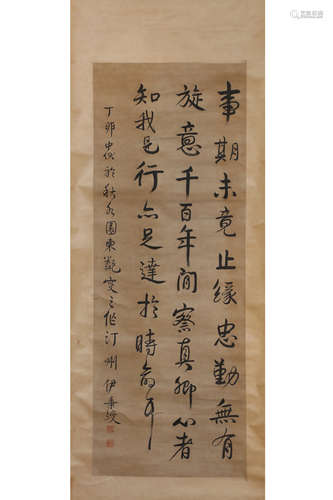 事期未竟止緣忠勤無有
旋意千百年間察真卿心者
知我是行亦足達於時命耳
丁卯 於秋水園東 之作汀州伊秉綬